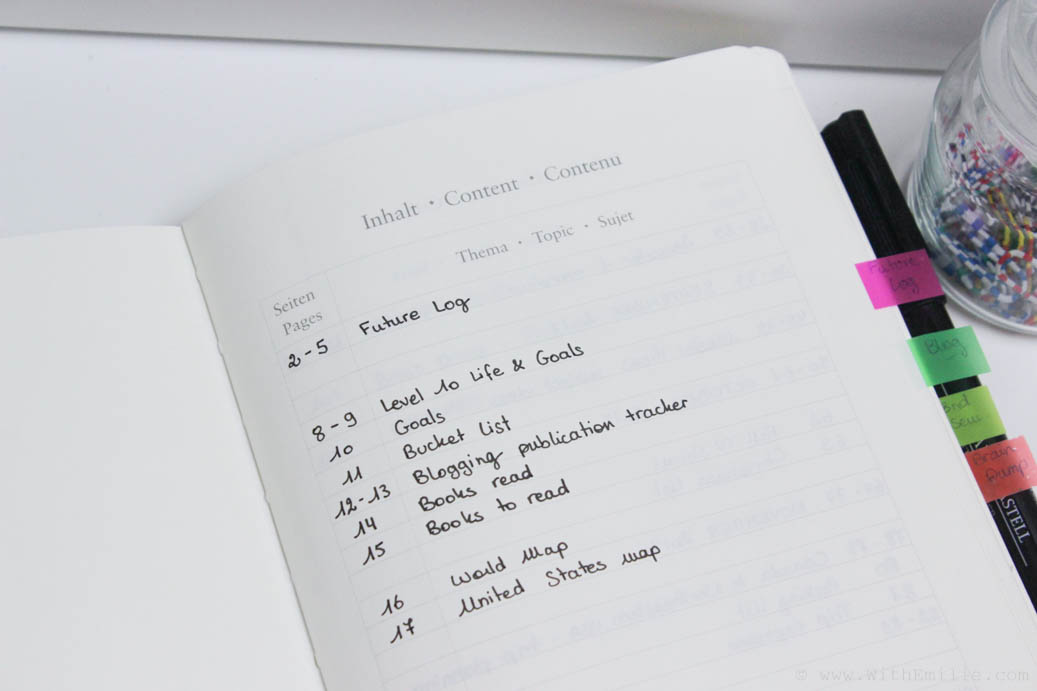 Inhalt • Content • Contenu
Thema • Topic • Sujet
Seiten
Pages
2-5 Future Log
8-9 Level 10 Life & Goals
10 Goals
11 Bucket List
12-13 Blogging publication tracker
14 Books read
15 Books to read
16 World Map
17 United States map
Future
Log
Blog
Brain
Dump
STELL
© www.WithEmilie.com